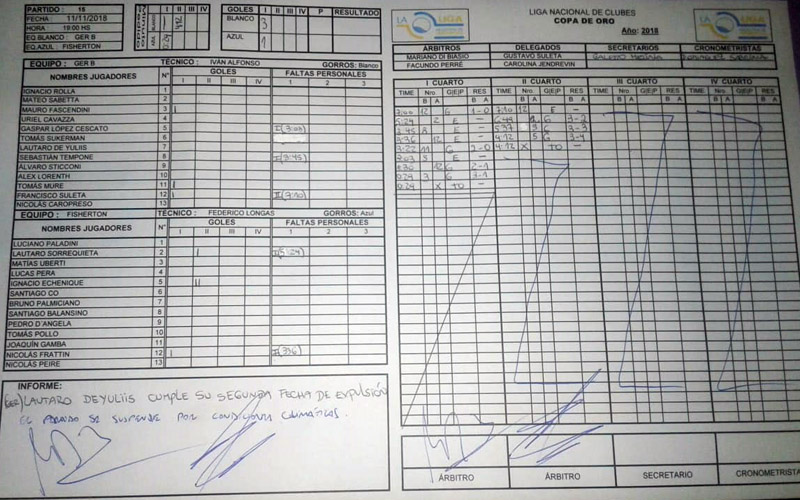 PARTIDO : 16
FECHA : 11/11/2018
HORA : 19:00 HS
EQ.BLANCO : GER B
EQ.AZUL : FISHERTON
I II III IV
GOLES I II III IV P RESULTADO
BLANCO 3
AZUL 1
EQUIPO : GER B TÉCNICO : IVÁN ALFONSO GORROS: Blanco
NOMBRES JUGADORES N° GOLES FALTAS PERSONALES
I II III IV 1 2 3
IGNACIO ROLLA 1
MATEO SABETTA 2
MAURO FASCENDINI 3 I
URIEL CAVAZZA 4
GASPAR LÓPEZ CESCATO 5
TOMÁS SUKERMAN 6
LAUTARO DE YULIIS 7
SEBASTIÁN TEMPONE 8
ÁLVARO STICCONI 9
ALEX LORENTH 10
TOMÁS MURE 11 I
FRANCISCO SULETA 12 I I(7:10)
NICOLÁS CAROPRESO 13
EQUIPO : FISHERTON TÉCNICO : FEDERICO LONGAS GORROS: Azul
NOMBRES JUGADORES N° GOLES FALTAS PERSONALES
I II III IV 1 2 3
LUCIANO PALADINI 1
LAUTARO SORREQUIETA 2 I I(5:24)
MATÍAS UBERTI 3
LUCAS PERA 4
IGNACIO ECHENIQUE 5 II
SANTIAGO CO 6
BRUNO PALMICIANO 7
SANTIAGO BALANSINO 8
PEDRO D'ANGELA 9
TOMÁS POLLO 10
JOAQUÍN GAMBA 11
NICOLÁS FRATTIN 12 I
NICOLÁS PEIRE 13
INFORME:
(GER) LAUTARO DEYULIIS CUMPLE SU SEGUNDA FECHA DE EXPULSIÓN
EL PARTIDO SE SUSPENDE POR CONDICIONES CLIMÁTICAS.
LA LIGA
LIGA NACIONAL DE CLUBES
COPA DE ORO
Año: 2018
LA LIGA
ÁRBITROS DELEGADOS SECRETARIOS CRONOMETRISTAS
MARIANO DI BIASIO GUSTAVO SULETA
FACUNDO PERRÉ CAROLINA JENDREVIN
I CUARTO II CUARTO III CUARTO IV CUARTO
TIME Nro. G|E|P RES TIME Nro. G|E|P RES TIME Nro. G|E|P RES TIME Nro. G|E|P RES
B A B A B A B A
7:00 12 G 1-0 7:10 12 E -
5:24 2 E - 6:44 G 3-2
3:45 8 E - 5:37 5 G 3-3
3:36 12 E - 4:12 5 G 3-4
3:22 11 G 2-0 4:12 X TO -
2:03 5 E -
1:30 12 G 2-1
0:24 3 G 3-1
0:24 X TO -
ÁRBITRO ÁRBITRO SECRETARIO CRONOMETRISTA